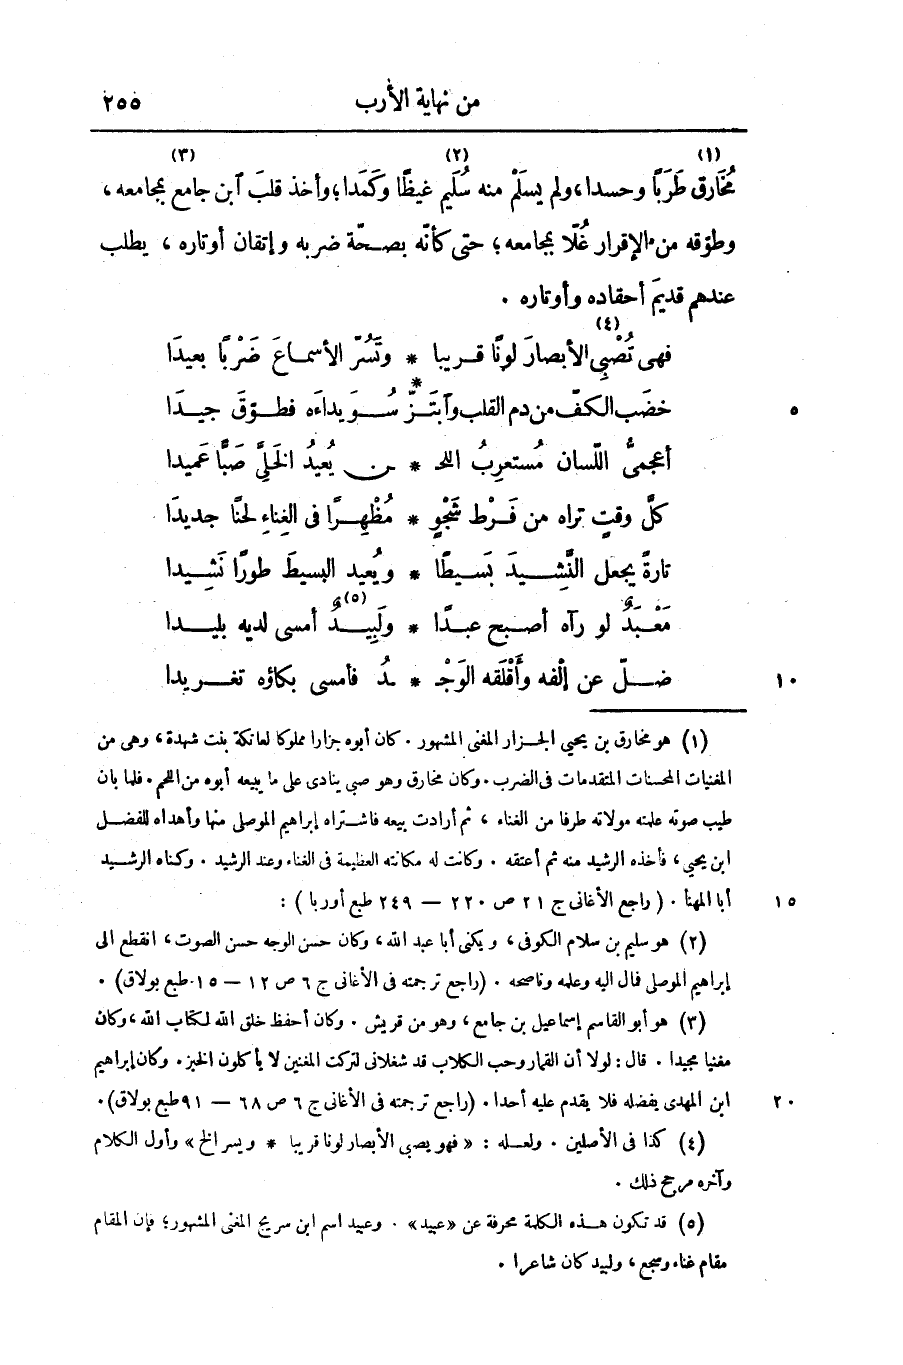 من نهاية الأرب ٢٥٥
(١) (٢) (٣)
مُخَارِق طَرَبًا وحسدا، ولم يسلَمْ منه سُلَيم غيظًا وكَمَدا؛ وأخذ قلبَ ٱبن جامع بمجامعه،
وطوّقه من الإقرار غُلًّا بمجامعه؛ حتى كأنّه بصحّة ضربه وإتقان أوتاره، يطلب
عندهم قديمَ أحقاده وأوتاره.
(٤)
فهى تُصْبِى الأبصارَ لونًا قريبا * وتَسُرّ الأسماعَ ضَرْبًا بعيدَا
٥ خضَب الكفّ من دم القلب وٱبتَزّ * سُوَيداءَه فطوّقَ جيدَا
أعجمىُّ اللّسان مُستعرِبُ اللحـ * ـن يُعيدُ الخَلِىَّ صَبًّا عَميدا
كلَّ وقتٍ تراه من فَرْط شَجْوٍ * مُظْهِرًا فى الغِناءِ لحنًا جديدَا
تارةً يجعل النَّشِيدَ بَسيطًا * ويُعيد البسيطَ طورًا نَشِيدا
(٥)
مَعْبَدٌ لو رآه أصبح عبدًا * ولَبِيدٌ أمسى لديه بليدا
١٠ ضلّ عن إلْفه وأَقْلَقه الوَجْـ * ـدُ فأمسى بكاؤه تغريدا
(١) هو مخارق بن يحيى الجزار المغنى المشهور. كان أبوه جزارا مملوكا لعاتكة بنت شهدة، وهى من
المغنيات المحسنات المتقدمات فى الضرب. وكان مخارق وهو صبى ينادى على ما يبيعه أبوه من اللحم. فلما بان
طيب صوته علمته مولاته طرفا من الغناء، ثم أرادت بيعه فاشتراه إبراهيم الموصلى منها وأهداه للفضل
ابن يحيى، فأخذه الرشيد منه ثم أعتقه. وكانت له مكانته العظيمة فى الغناء وعند الرشيد. وكناه الرشيد
١٥ أبا المهنأ. (راجع الأغانى ج ٢١ ص ٢٢٠ — ٢٤٩ طبع أوربا):
(٢) هو سليم بن سلام الكوفى، ويكنى أبا عبد الله، وكان حسن الوجه حسن الصوت، انقطع الى
إبراهيم الموصلى فمال اليه وعلمه وناصحه. (راجع ترجمته فى الأغانى ج ٦ ص ١٢ — ١٥ طبع بولاق).
(٣) هو أبو القاسم إسماعيل بن جامع، وهو من قريش. وكان أحفظ خلق الله لكتاب الله، وكان
مغنيا مجيدا. قال: لولا أن القمار وحب الكلاب قد شغلانى لتركت المغنين لا يأكلون الخبز. وكان إبراهيم
٢٠ ابن المهدى يفضله فلا يقدم عليه أحدا. (راجع ترجمته فى الأغانى ج ٦ ص ٦٨ — ٩١ طبع بولاق).
(٤) كذا فى الأصلين. ولعله: «فهو يصبى الأبصار لونا قريبا * ويسر الخ» وأول الكلام
وآخره مرجح ذلك.
(٥) قد تكون هذه الكلمة محرفة عن «عبيد». وعبيد اسم ابن سريج المغنى المشهور؛ فإن المقام
مقام غناء وسجع، ولبيد كان شاعرا.